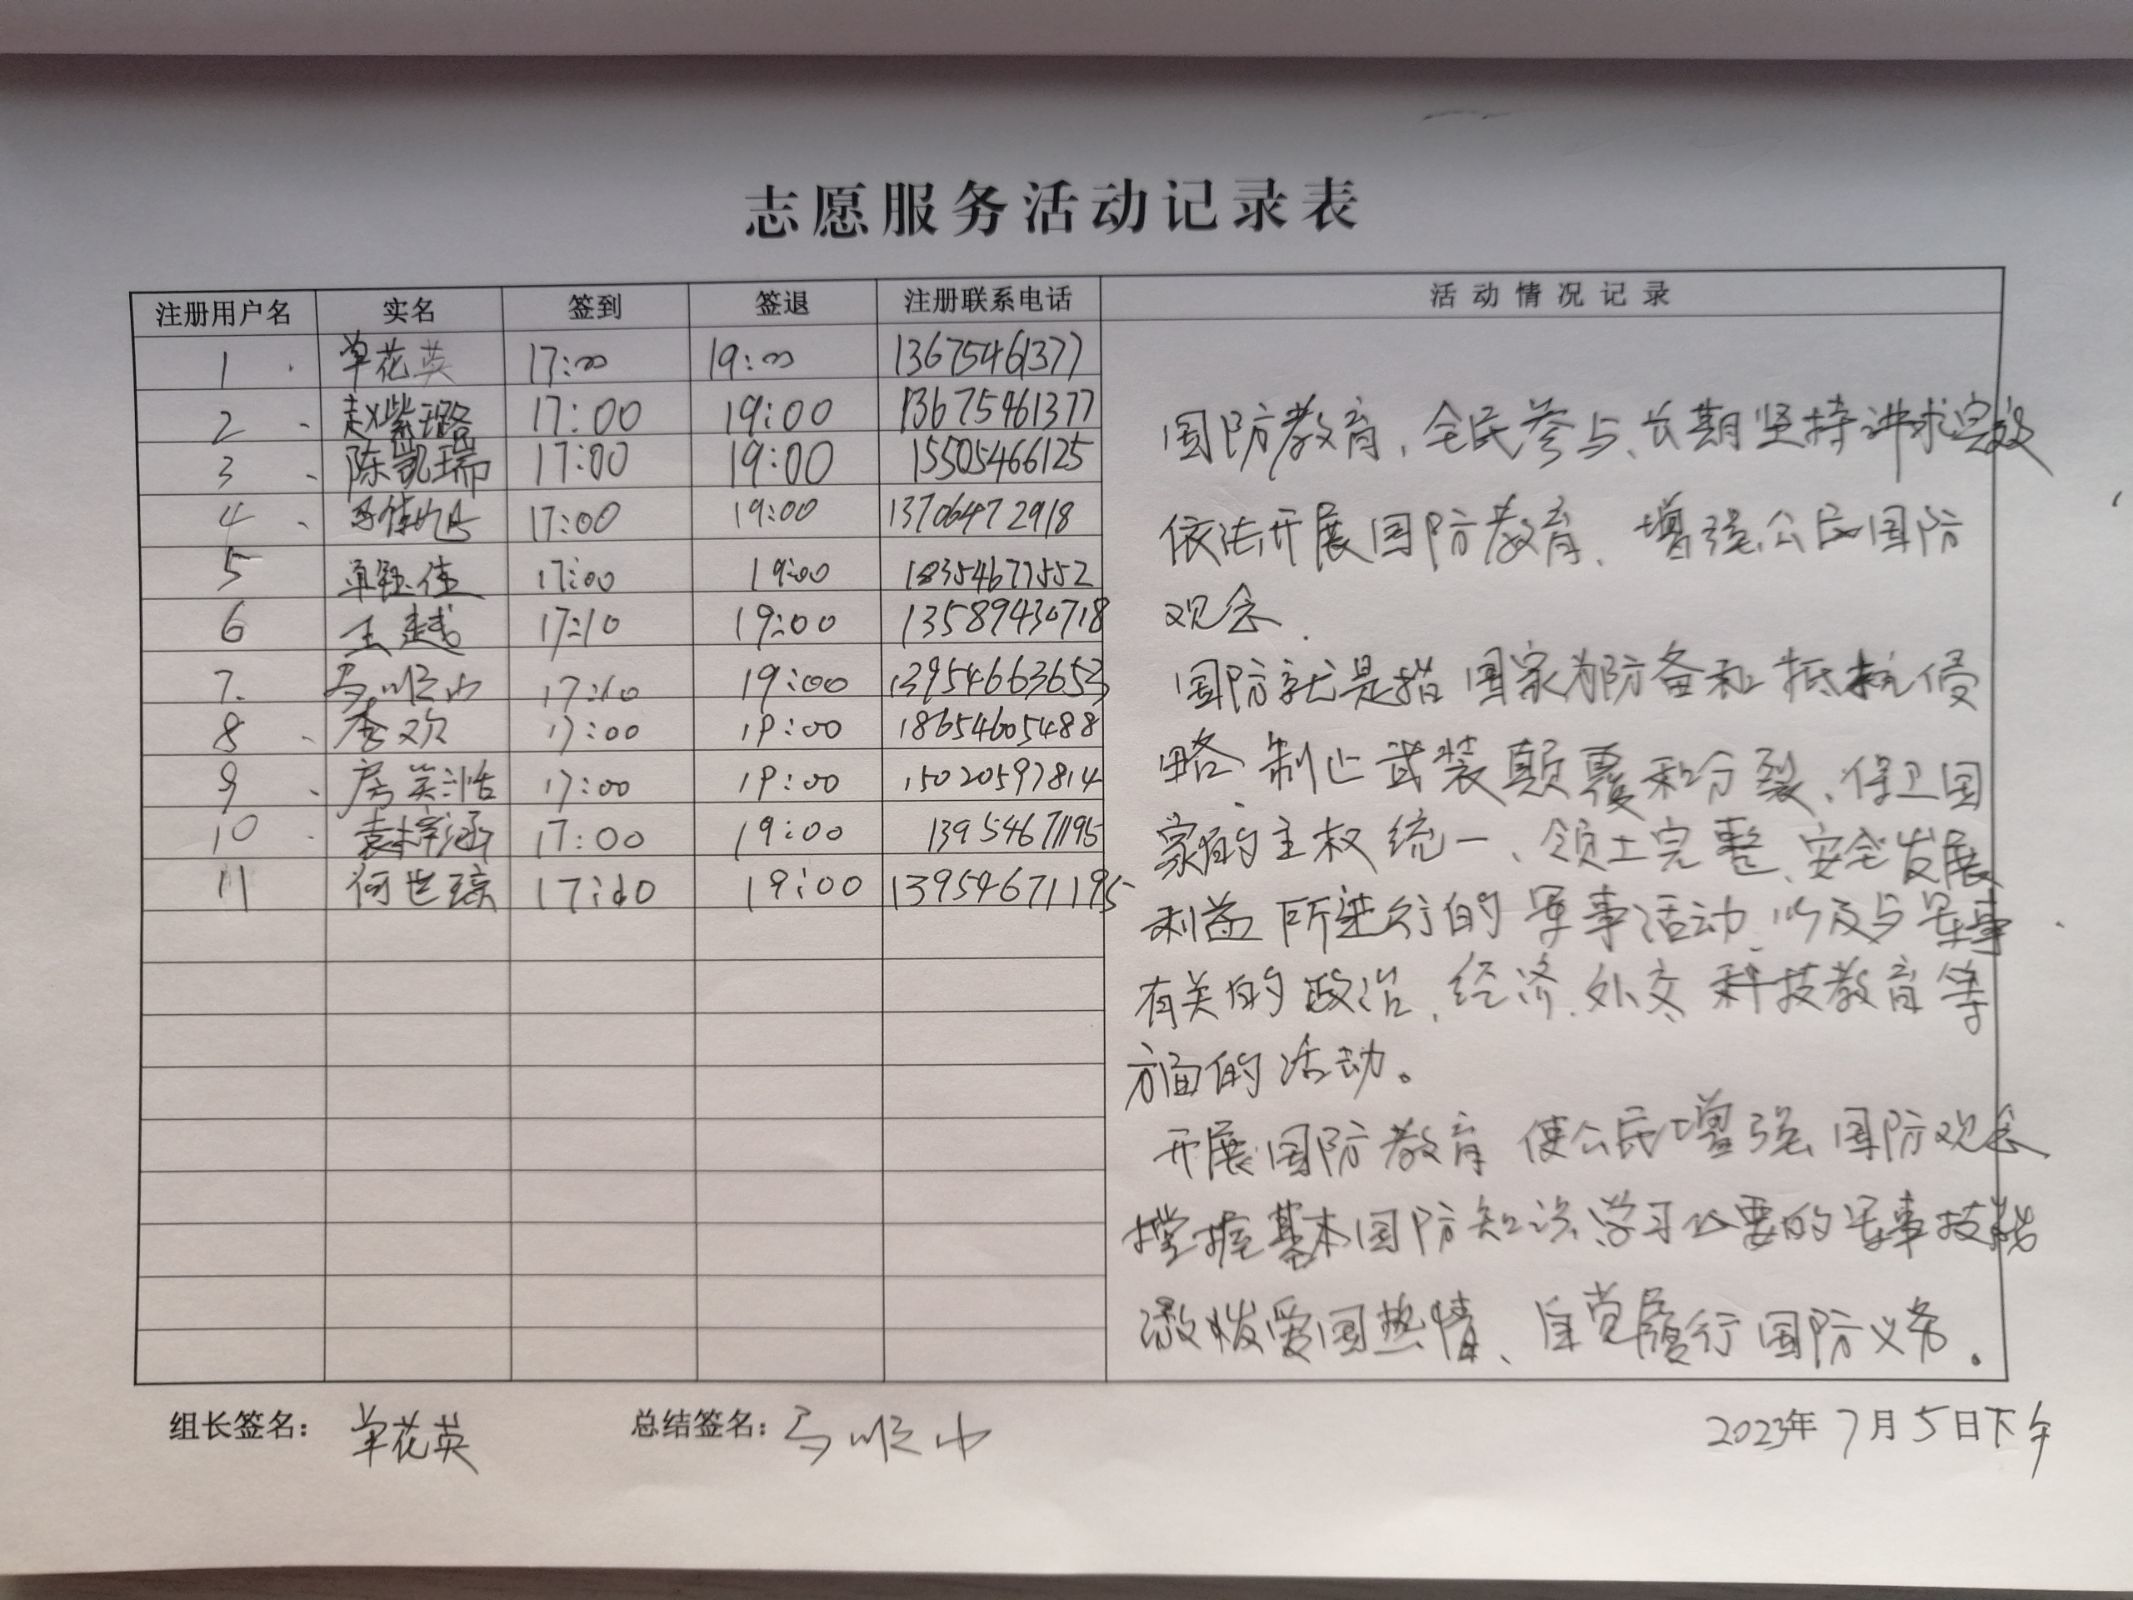 志愿服务活动记录表
注册用户名 实名 签到 签退 注册联系电话 活动情况记录
1 单花英 17:00 19:00 13675461377
2 赵紫璐 17:00 19:00 13675461377
3 陈凯瑞 17:00 19:00 15505466125
4 17:00 19:00 13706472918
5 单钰佳 17:00 19:00 18354677552
6 王越 17:10 19:00 13589430718
7. 马顺小 17:10 19:00 13954663653
8 李欢 17:00 19:00 18654605488
9 房笑浩 17:00 19:00 15020597814
10 袁梓涵 17:00 19:00 13954671195
11 何世琼 17:00 19:00 13954671195
国防教育、全民参与、长期坚持讲求实效
依法开展国防教育、增强公民国防
观念.
国防就是指国家为防备和抵抗侵
略、制止武装颠覆和分裂、保卫国
家的主权统一、领土完整、安全发展
利益所进行的军事活动、以及与军事
有关的政治、经济、外交、科技教育等
方面的活动。
开展国防教育使公民增强国防观念
掌握基本国防知识学习必要的军事技能
激发爱国热情、自觉履行国防义务。
组长签名: 单花英 总结签名: 马顺小 2023年7月5日下午